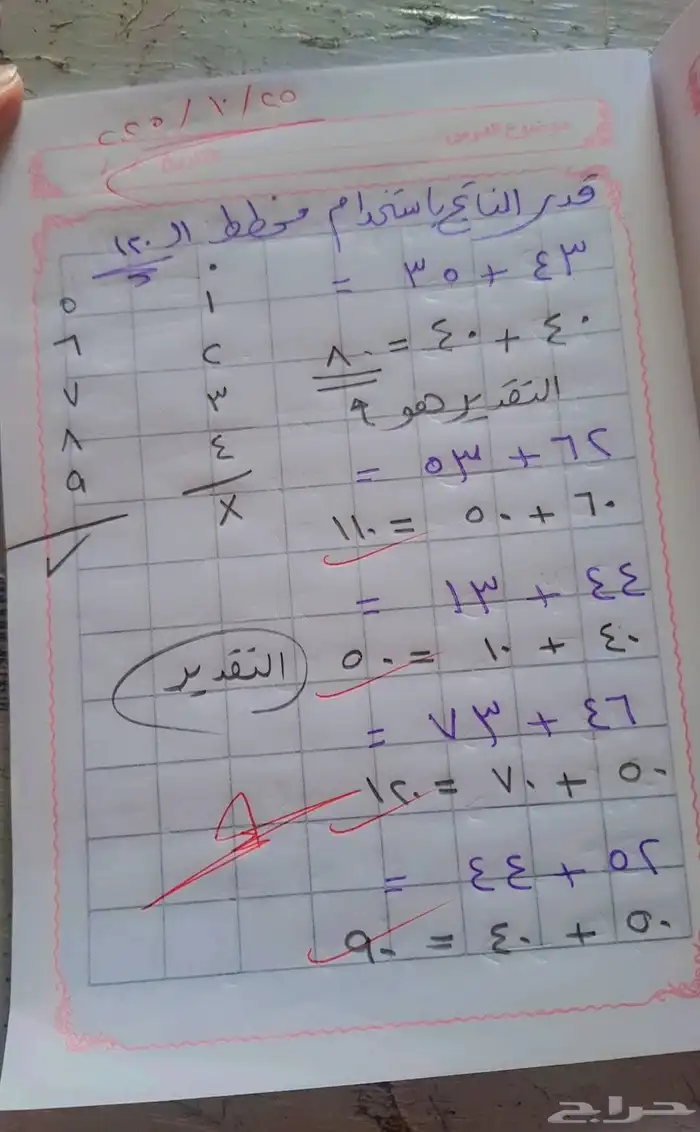 موضوع الدرس
قدر الناتج باستخدام مخطط الـ ١٢٠
٤٣ + ٣٥ =
٤٠ + ٤٠ = ٨٠
التقدير هو
٦٢ + ٥٣ =
٦٠ + ٥٠ = ١١٠
٤٤ + ١٣ =
٤٠ + ١٠ = ٥٠
التقدير
٤٦ + =
٥٠ + ٧٠ = ١٢٠
٥٢ + ٤٤ =
٥٠ + ٤٠ = ٩٠
٠ ٥
١ ٦
٢ ٧
٣ ٨
٤ ٩
حراج